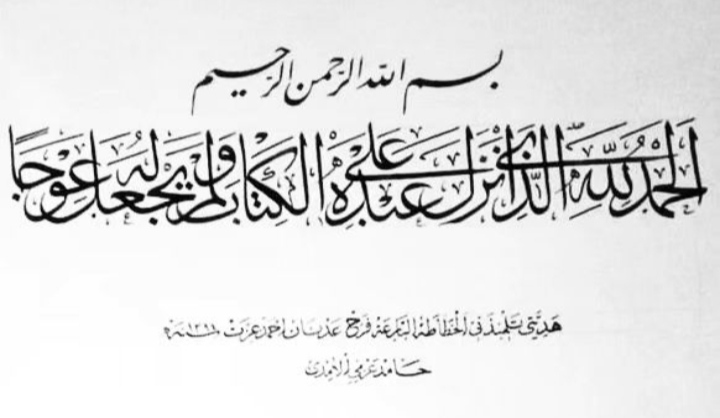 بسم الله الرحمن الرحيم
اَلْحَمْدُ لِلّٰهِ الَّذِي اَنْزَلَ عَلٰى عَبْدِهِ الْكِتَابَ وَلَمْ يَجْعَلْ لَهُ عِوَجًا
هديتي لتلميذتي الخطاطة البارعة فرح عدنان احمد عزت سنه
حامد الآمدي